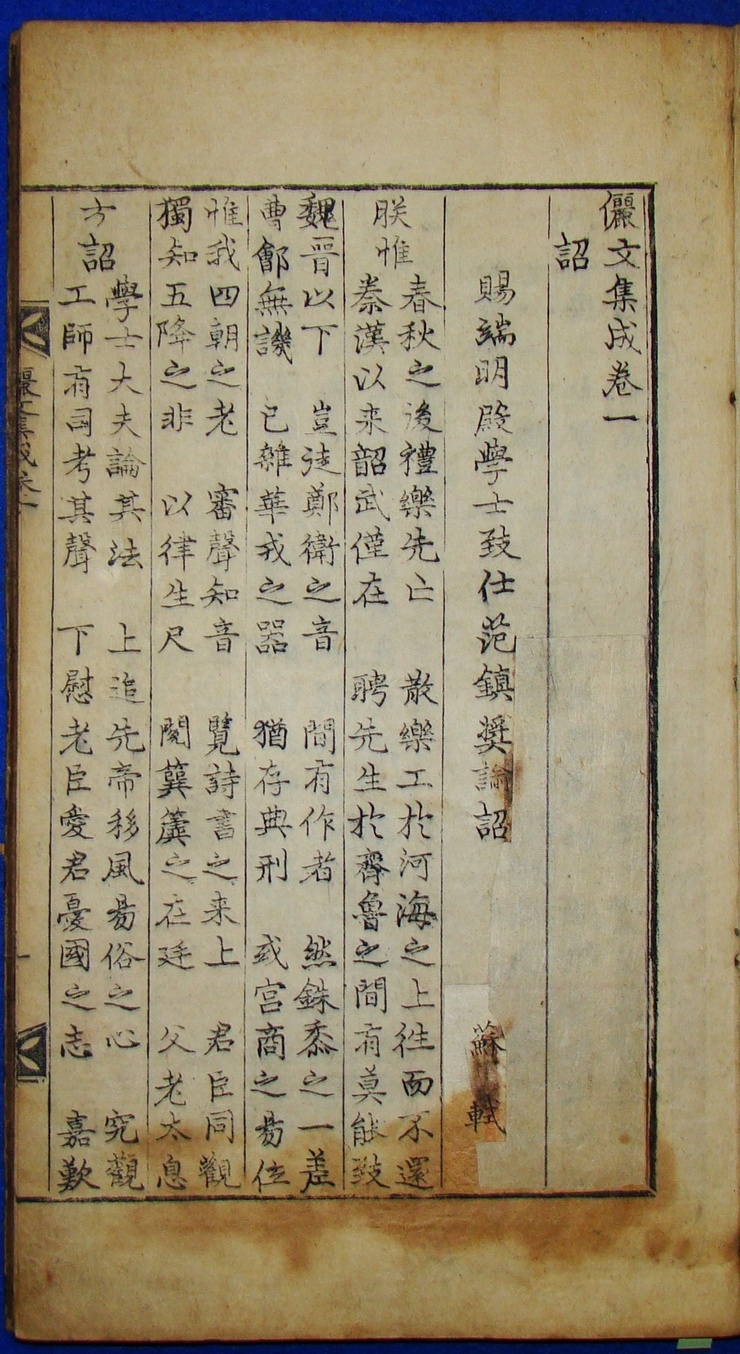 儷文集成卷一
詔
賜端明殿學士致仕范鎮奬諭詔 蘇軾
朕惟
春秋之後禮樂先亡 散樂工於河海之上徃而不還
秦漢以来韶武僅在 聘先生於齊魯之間有莫能致
魏晉以下 豈徒鄭衛之音 間有作者 然銖黍之一差
曹鄶無譏 已雜華戎之器 猶存典刑 或宫商之易位
惟我四朝之老 審聲知音 覽詩書之来上 君臣同觀
獨知五降之非 以律生尺 閱簨簴之在廷 父老太息
方詔
學士大夫論其法 上追先帝移風易俗之心 究觀
工師有司考其聲 下慰老臣愛君憂國之志 嘉歎
儷文集成卷一 一